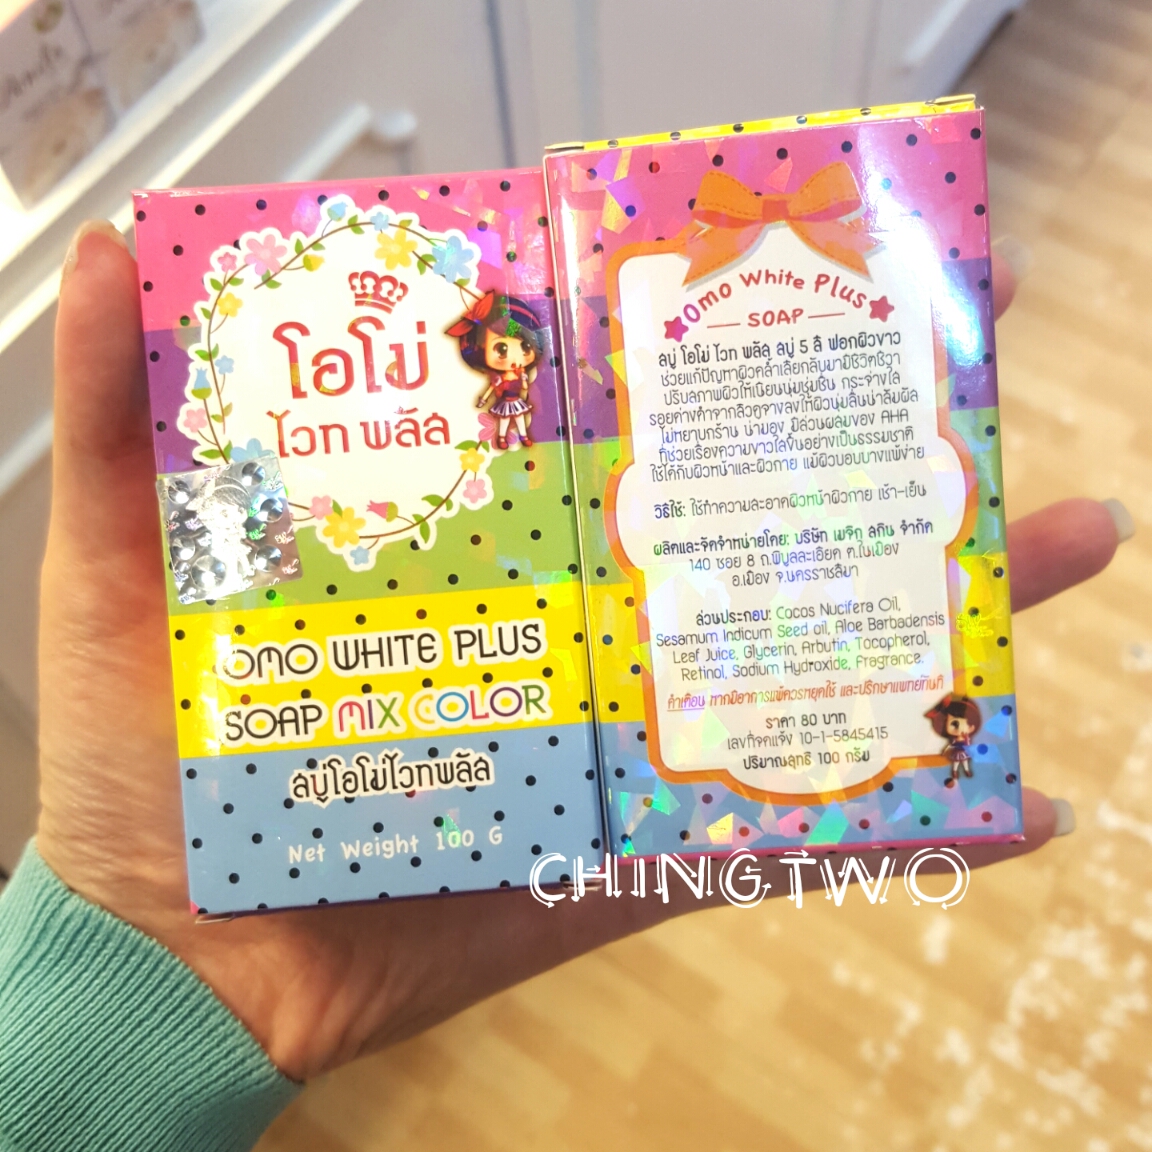 โอโม่
ไวท พลัส
OMO WHITE PLUS
SOAP MIX COLOR
สบู่โอโม่ไวทพลัส
Net Weight 100 G
Omo White Plus
SOAP
สบู่ โอโม่ ไวท พลัส สบู่ 5 สี ฟอกผิวขาว
ช่วยแก้ปัญหาผิวคล้ำเสียกลับมามีชีวิตชีวา
ปรับสภาพผิวให้เนียนนุ่มชุ่มชื่น กระจ่างใส
รอยด่างดำจากสิวดูจางลงให้ผิวนุ่มลื่นน่าสัมผัส
ไม่หยาบกร้าน น่ามอง มีส่วนผสมของ AHA
ที่ช่วยเรื่องความขาวใสขึ้นอย่างเป็นธรรมชาติ
ใช้ได้กับผิวหน้าและผิวกาย แม้ผิวบอบบางแพ้ง่าย
วิธีใช้: ใช้ทำความสะอาดผิวหน้าผิวกาย เช้า-เย็น
ผลิตและจัดจำหน่ายโดย: บริษัท เมจิก สกิน จำกัด
140 ซอย 8 ถ.พิบูลละเอียด ต.ในเมือง
อ.เมือง จ.นครราชสีมา
ส่วนประกอบ: Cocos Nucifera Oil,
Sesamum Indicum Seed oil, Aloe Barbadensis
Leaf Juice, Glycerin, Arbutin, Tocopherol,
Retinol, Sodium Hydroxide, Fragrance.
คำเตือน หากมีอาการแพ้ควรหยุดใช้ และปรึกษาแพทย์ทันที
ราคา 80 บาท
เลขที่จดแจ้ง 10-1-5845415
ปริมาณสุทธิ 100 กรัม
CHINGTWO